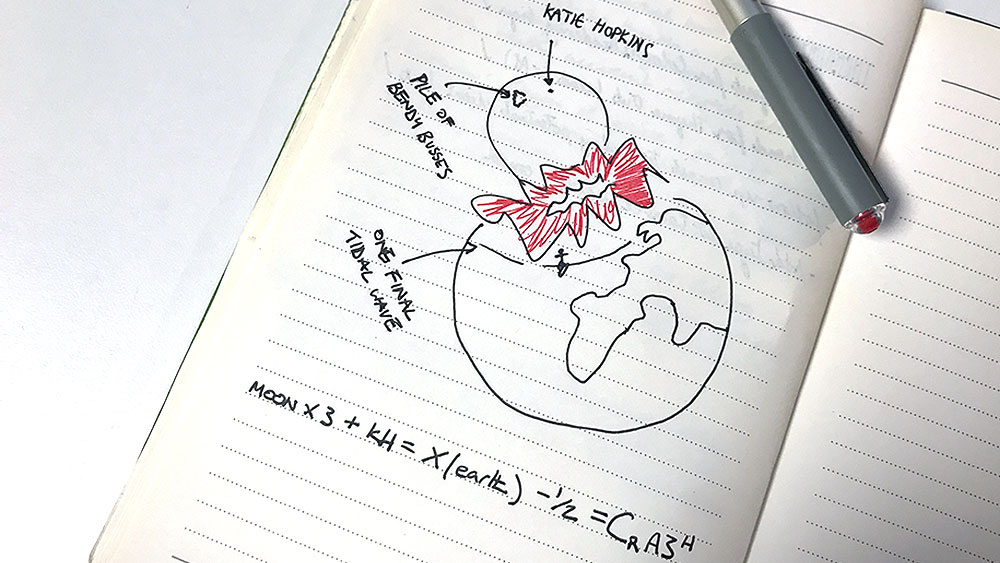 KATIE HOPKINS
PILE OF
BENDY BUSSES
ONE FINAL
TIDAL WAVE
MOON X 3 + KH = X(earth) - 1/2 = CRA3H